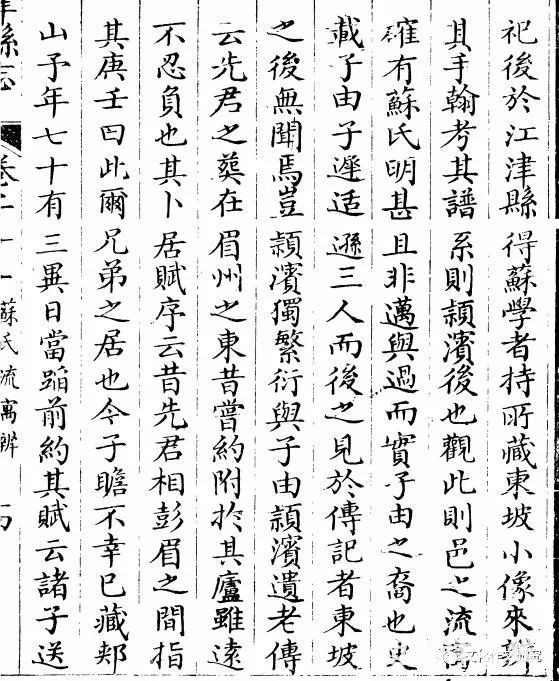 祀後於江津縣得蘇學者持所藏東坡小像來
其手翰考其譜系則潁濱後也觀此則邑之流
確有蘇氏明甚且非邁與過而實子由之裔也史
載子由子遲适遜三人而後之見於傳記者東坡
之後無聞焉豈潁濱獨繁衍與子由潁濱遺老傳
云先君之葬在眉州之東昔嘗約附於其廬雖遠
不忍負也其卜居賦序云昔先君相彭眉之間指
其庚壬曰此爾兄弟之居也今子瞻不幸已藏郟
山予年七十有三異日當蹈前約其賦云諸子送
縣志
卷二十一
蘇氏流寓辨